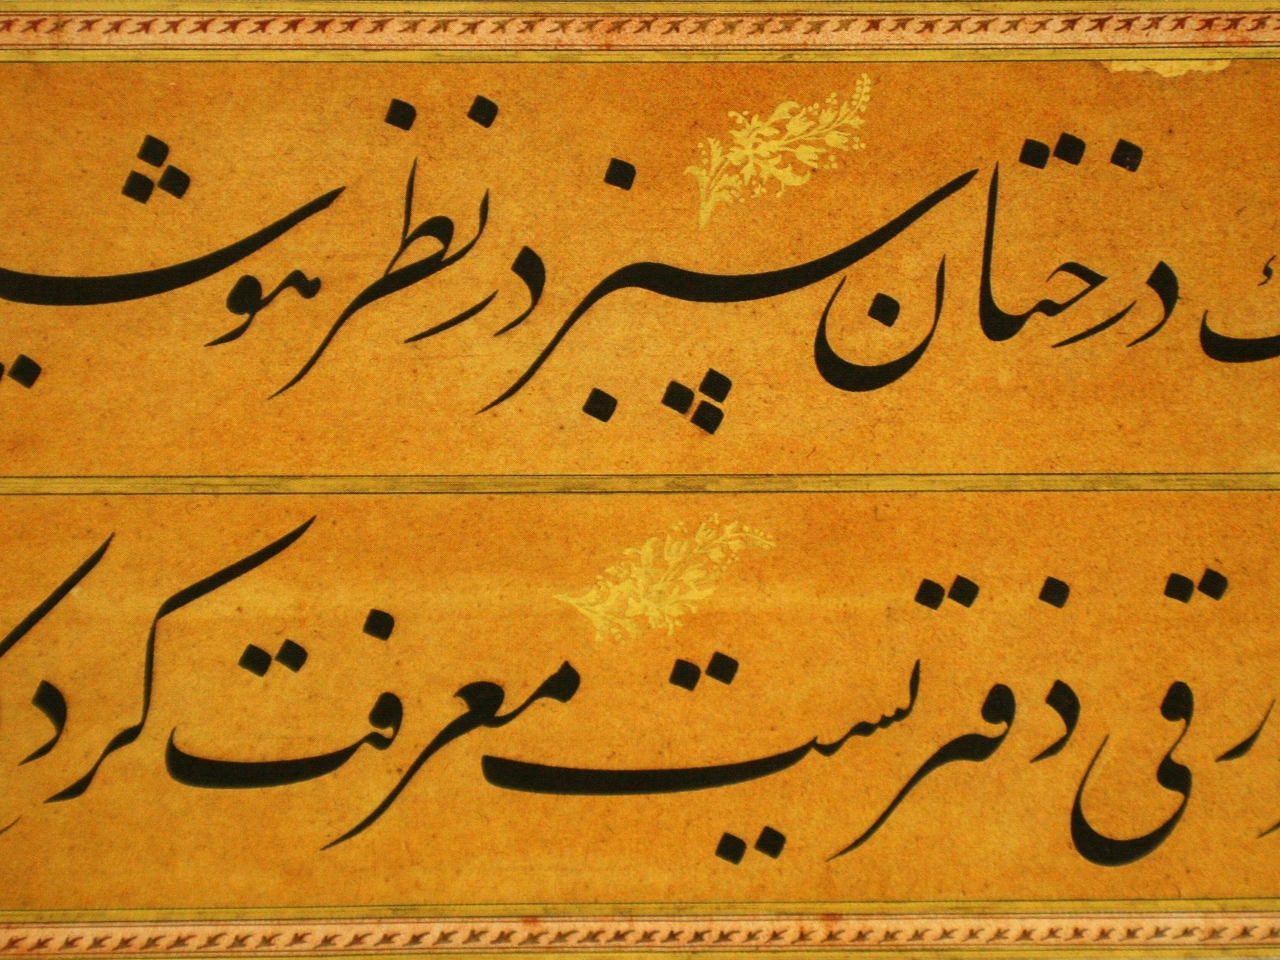 درختان سبز در نظر هوشیـ
رقی دفتریست معرفت کرد